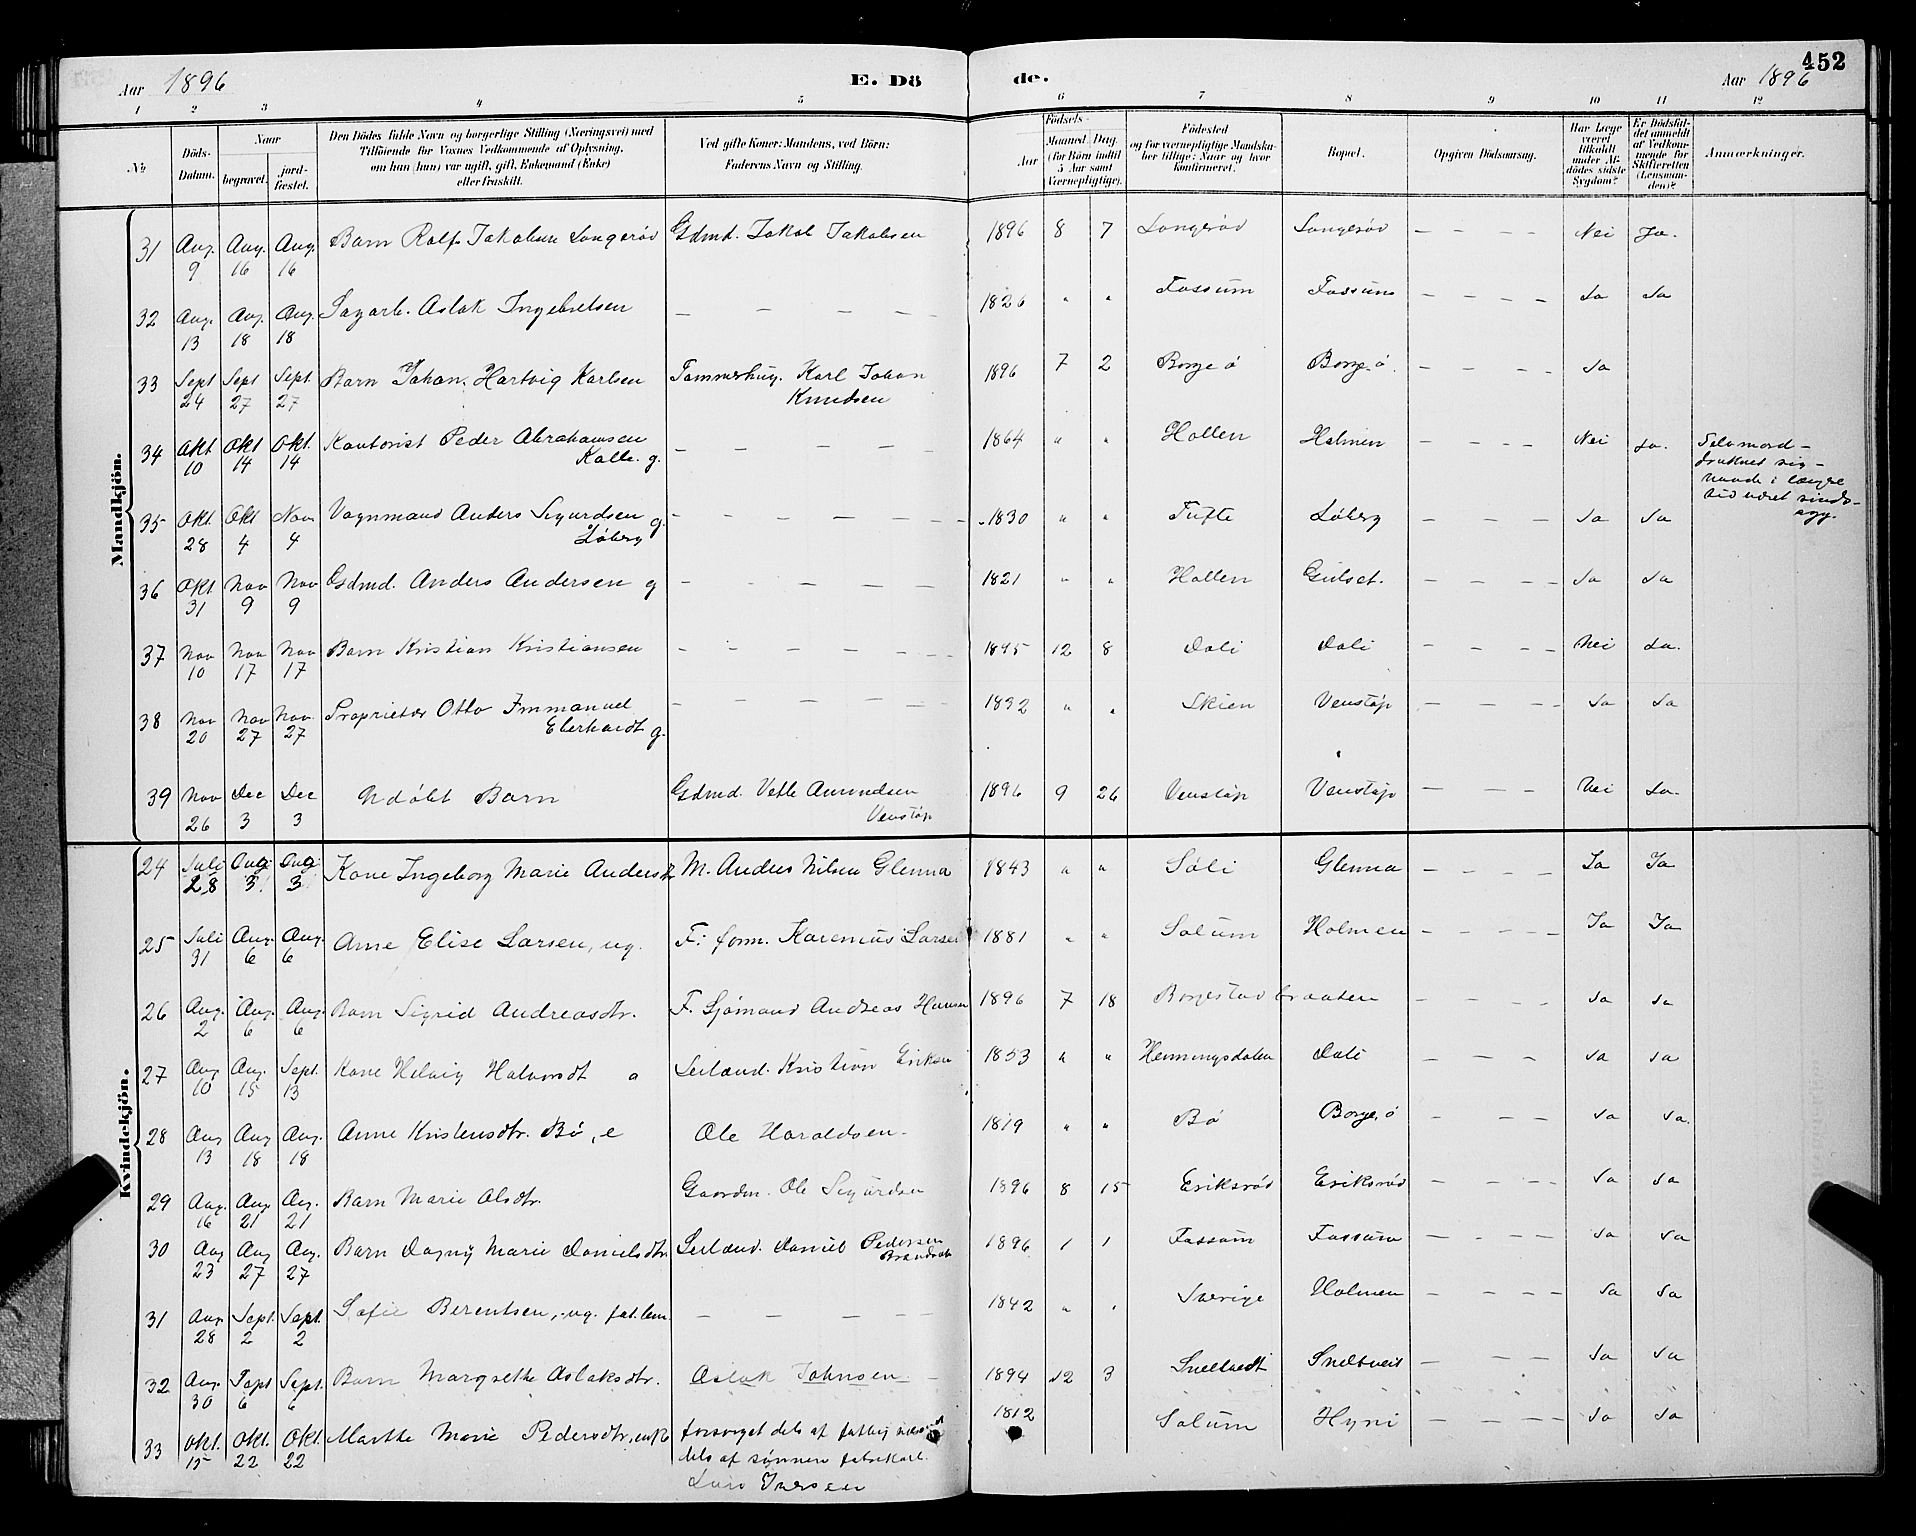 Aar 1896 E. Dö de. Aar 1896 452
1 2 3 4 5 6 7 8 9 10 11 12
No
Döds-Datum.
Naar
begravet.
jord-fæstet.
Den Dödes fulde Navn og borgerlige Stilling (Næringsvei) med
Tilföiende for Voxnes Vedkommende af Oplysning,
om han (hun) var ugift, gift, Enkemand (Enke)
eller fraskilt.
Ved gifte Koner: Mandens, ved Börn:
Faderens Navn og Stilling.
Födsels-
Aar
Maaned Dag.
(for Börn indtil
5 Aar samt
Værnepligtige).
Födested
og for værnepligtige Mandska-
ber tillige: Naar og hvor
konfirmeret.
Bopæl.
Opgiven Dödsaarsag.
Har Læge
været
tilkaldt
under Af-
dödes sidste
Sygdom?
Er Dödsfal-
det anmeldt
af Vedkom-
mende for
Skifteretten
(Lensman-
den)?
Anmærkninger.
Mandkjön.
31 Aug. 9 Aug. 16 Aug. 16 Barn Rolf Jakobsen Langerød Gdmd. Jakob Jakobsen 1896 8 7 Langerød Langerød — — — — Nei Ja.
32 Aug. 13 Aug. 18 Aug. 18 Sagarb. Aslak Ingebretsen — — — — — 1826 " " Fossum Fossum — — — — Ja Ja
33 Sept 24 Sept 27 Sept. 27 Barn Johan Hartvig Karlsen Tømmerhug. Karl Johan
Knudsen 1896 7 2 Borgeø Borgeø. — — — — Ja
34 Okt 10 Okt 14 Okt. 14 Kontorist Peder Abrahamsen
Kalle. g. — — — — 1864 " " Hollen Holmen — — — — Nei Ja. Selvmord –
druknet sig –
havde i længre
tid været sinds-
syg.
35 Okt. 28 Okt 4 Nov 4 Vognmand Anders Sigurdsen
Løberg g. — — — — — 1830 " " Tufte Løberg — — — — Ja Ja
36 Okt 31 Nov 9 Nov 9 Gdmd. Anders Andersen g — — — — — 1821 " " Hollen Gulset. — — — — Ja Ja
37 Nov 10 Nov 17 Nov 17 Barn Kristian Kristiansen — — — — — 1895 12 8 Doli Doli — — — — Nei Ja.
38 Nov 20 Nov 27 Nov. 27 Proprietær Otto Immanuel
Eberhardt g. — — — — — 1832 " " Skien Venstøp — — — — Ja Ja
39 Nov 26 Dec 3 Dec 3 Udøbt Barn Gdmd. Vetle Amundsen
Venstøp 1896 9 26 Venstøp Venstøp — — — Nei Ja.
Kvindekjön.
24 Juli 28 Aug. 3. Aug. 3 Kone Ingeborg Marie M. Anders Nilsen Glenna 1843 " " Søli Glenna — — — — Ja Ja
25 Juli 31 Aug. 6 Aug. 6 Anne Elise Larsen, ug. F: form. Karenius Larsen 1881 " " Solum Holmen — — — — Ja Ja
26 Aug. 2 Aug. 6 Aug. 6 Barn Sigrid Andreasdtr. F. Sjømand Andreas Hansen 1896 7 18 Borgestadbraaten — — — — Ja Ja
27 Aug. 10 Aug. 15 Sept. 13 Kone Helvig Halvorsdt Kristian Eriksen 1853 " " Henningsdalen Doli — — — Ja Ja
28 Aug 13 Aug 18 Aug. 18 Anne Kristensdtr. Bø, e Ole Haraldsen. 1819 " " Bø Borgeø — — — Ja Ja.
29 Aug. 16 Aug 21 Aug. 21 Barn Marie Olsdtr. Gaardm. Ole Sigurdsen 1896 8 15 Eriksrød Eriksrød — — — — Ja Ja
30 Aug 23 Aug 27 Aug. 27 Barn Dagny Marie Danielsdtr. Daniel Pedersen 1896 1 1 Fossum Fossum — — — — Ja Ja
31 Aug. 28 Sept. 2 Sept. 2 Sofie Berentsen, ug. fat.lem. — — — — 1842 " " Sverige Holmen — — — — Ja Ja
32 Aug. 30 Sept 6 Sept. 6 Barn Margrethe Aslaksdtr. Aslak Johnsen 1894 12 3 Sneltvedt Sneltveit — — — — Ja Ja
33 Okt. 15 Okt. 22 Okt. 22 Marthe Marie Pedersdtr, enke forsørget dels af
dels af sønnen fabrikarb.
Lars Iversen 1812 Solum Hyni — — — — Ja Ja